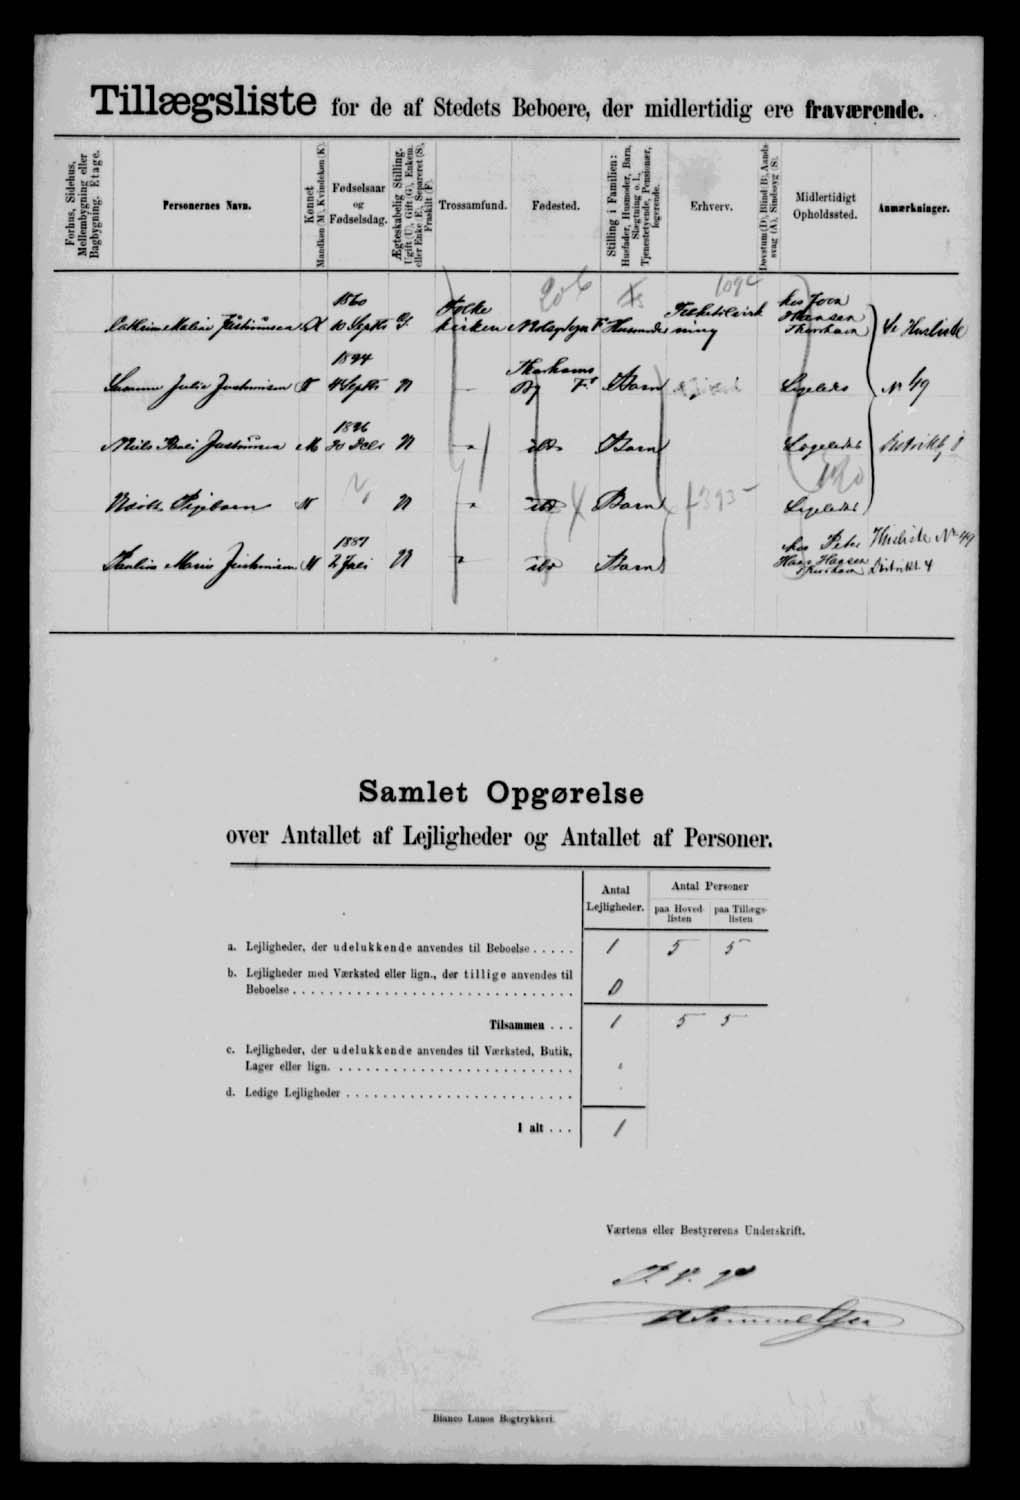 Tillægsliste for de af Stedets Beboere, der midlertidig ere fraværende.
Forhus, Sidehus, Mellembygning eller Bagbygning. Etage.
Personernes Navn.
Kønnet Mandkøn (M), Kvindekøn (K).
Fødselsaar og Fødselsdag.
Ægteskabelig Stilling. Ugift (U), Gift (G), Enkem. eller Enke (E), Separeret (S), Fraskilt (F).
Trossamfund.
Fødested.
Stilling i Familien: Husfader, Husmoder, Barn, Slægtning o. l., Tjenestetyende, Pensionær, logerende.
Erhverv.
Døvstum (D), Blind (B), Aandssvag (A), Sindssyg (S).
Midlertidigt Opholdssted.
Anmærkninger.
1094
206
1860
10 Septbr G
Folke
kirken
Husmoder
hos Joen
Hansen
Thorshavn
se Husliste
1894
4 Septbr U
By F. Barn
Ligeledes
No 49
1896
Niels
Justinussen M
U
Barn
Ligeledes
Distrikt
120
Pigebarn
U
Barn
Ligeledes
1887
Marius Justinussen M 2 Juli U
Barn
hos Peter
Hans Hansen
Thorshavn
Husliste No 49
Distrikt 4
Samlet Opgørelse
over Antallet af Lejligheder og Antallet af Personer.
Antal Lejligheder.
Antal Personer
paa Hovedlisten
paa Tillægslisten
a. Lejligheder, der udelukkende anvendes til Beboelse . . . . . 1 5 5
b. Lejligheder med Værksted eller lign., der tillige anvendes til
Beboelse . . . . . . . . . . . . . . . . . . . . . . . . . . . . . . 0
Tilsammen . . . 1 5 5
c. Lejligheder, der udelukkende anvendes til Værksted, Butik,
Lager eller lign. . . . . . . . . . . . . . . . . . . . . . . . . . .
d. Ledige Lejligheder . . . . . . . . . . . . . . . . . . . . . . . . .
I alt . . . 1
Værtens eller Bestyrerens Underskrift.
Bianco Lunos Bogtrykkeri.